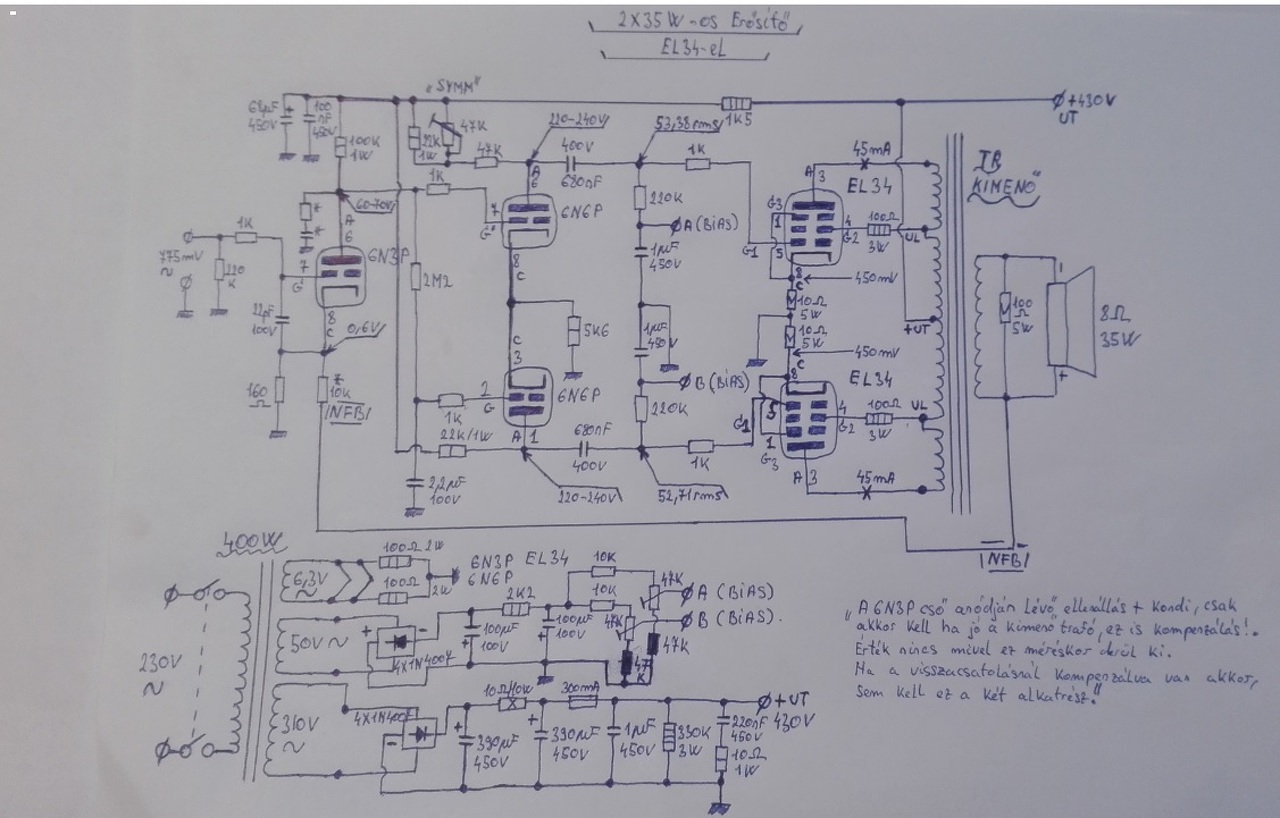 2X35W-os Erősítő
EL34-el
„SYMM"
68µF
450V
100
nF
450V
100K
1W
22K
1W
47K
47K
220-240V
400V
680nF
53,38rms
1K
1K5
+430V
UT
45mA
TR
KIMENŐ"
1K
60-70V
A
6
7
G'
6N6P
8
C
220K
A (BiAS)
1µF
450V
G3
1
5
G1
A
3
EL34
4
G2
100Ω
3W
UL
775mV
~
1K
220
K
*
*
A
6
6N3P
7
G'
8
C
22pF
100V
0,6V
160
Ω
*
10K
|NFB|
2M2
5K6
1µF
450V
8
C
450mV
10Ω
5W
10Ω
5W
450mV
C
8
+UT
100
Ω
5W
8Ω
35W
C
3
2
G
6N6P
1K
22K/1W
A
1
680nF
400V
B (BiAS)
220K
G1
5
1
G3
EL34
4
G2
100Ω
3W
UL
1K
A
3
45mA
2,2µF
100V
220-240V
52,71rms
|NFB|
400W
6,3V
100Ω
2W
100Ω
2W
6N3P EL34
6N6P
230V
~
50V~
4X1N4007
100µF
100V
2K2
100µF
100V
10K
10K
47K
47K
47
K
47K
A (BiAS)
B (BiAS).
310V
~
4X1N4007
10Ω/10W
300mA
390µF
450V
390µF
450V
1µF
450V
330K
3W
220nF
450V
10Ω
1W
+UT
430V
„A 6N3P cső anódján lévő ellenállás + kondi, csak
akkor kell ha jó a kimenő trafó, ez is kompenzálás!.
Érték nincs mivel ez méréskor derül ki.
Ha a visszacsatolásnál kompenzálva van akkor,
sem kell ez a két alkatrész."